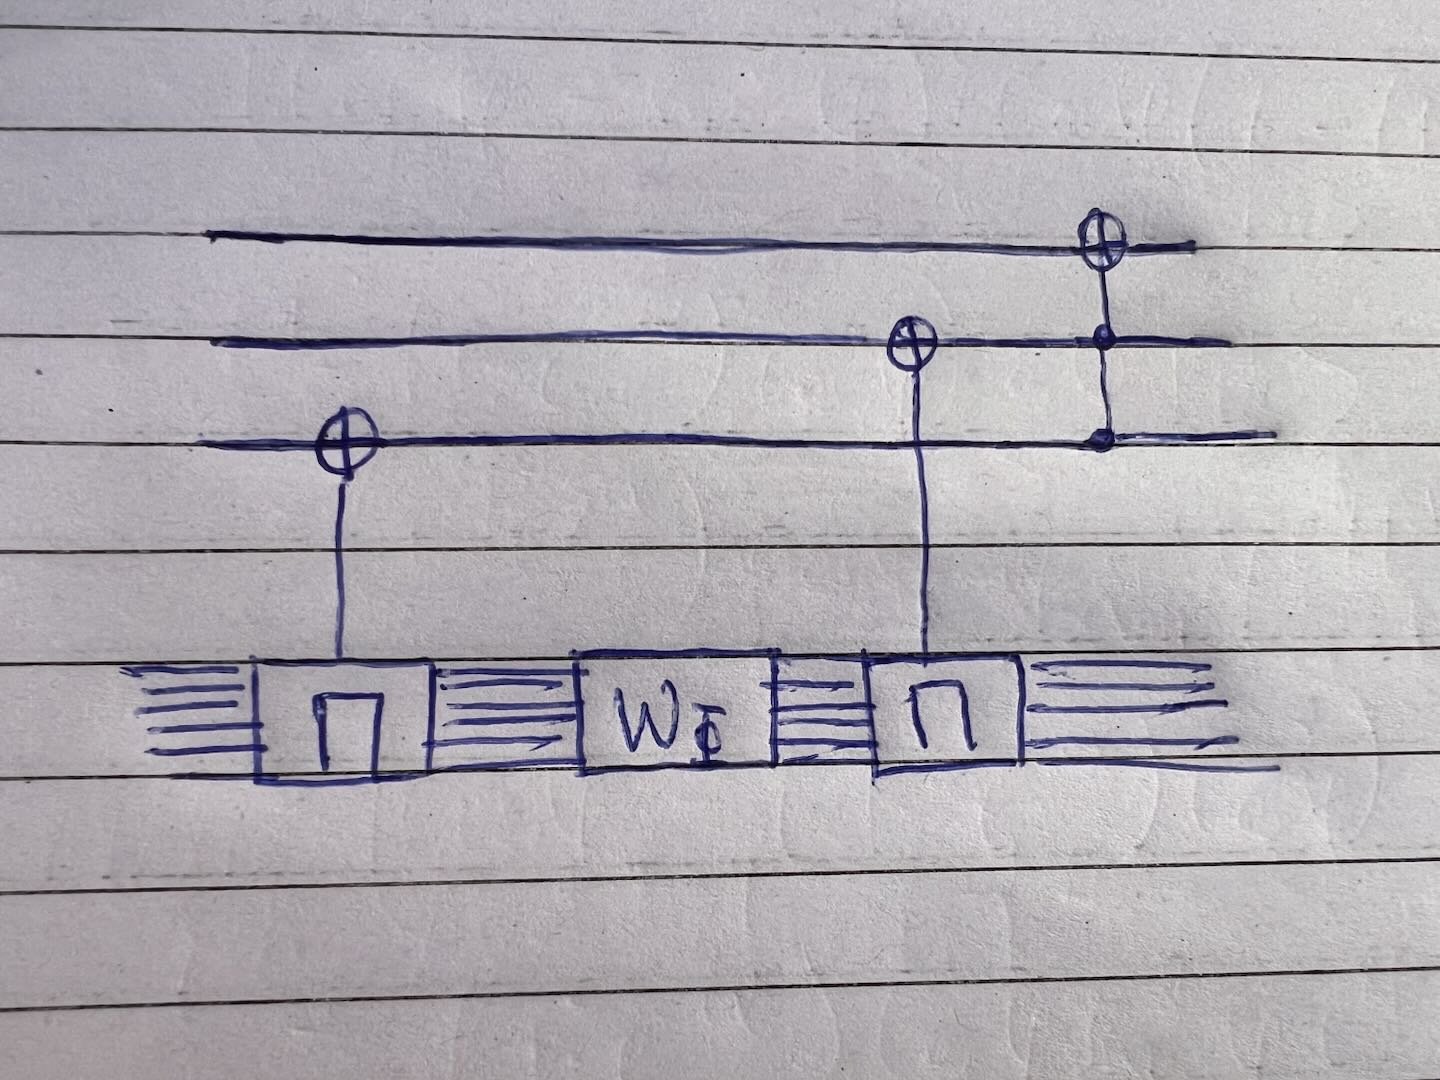 Π W_Φ Π